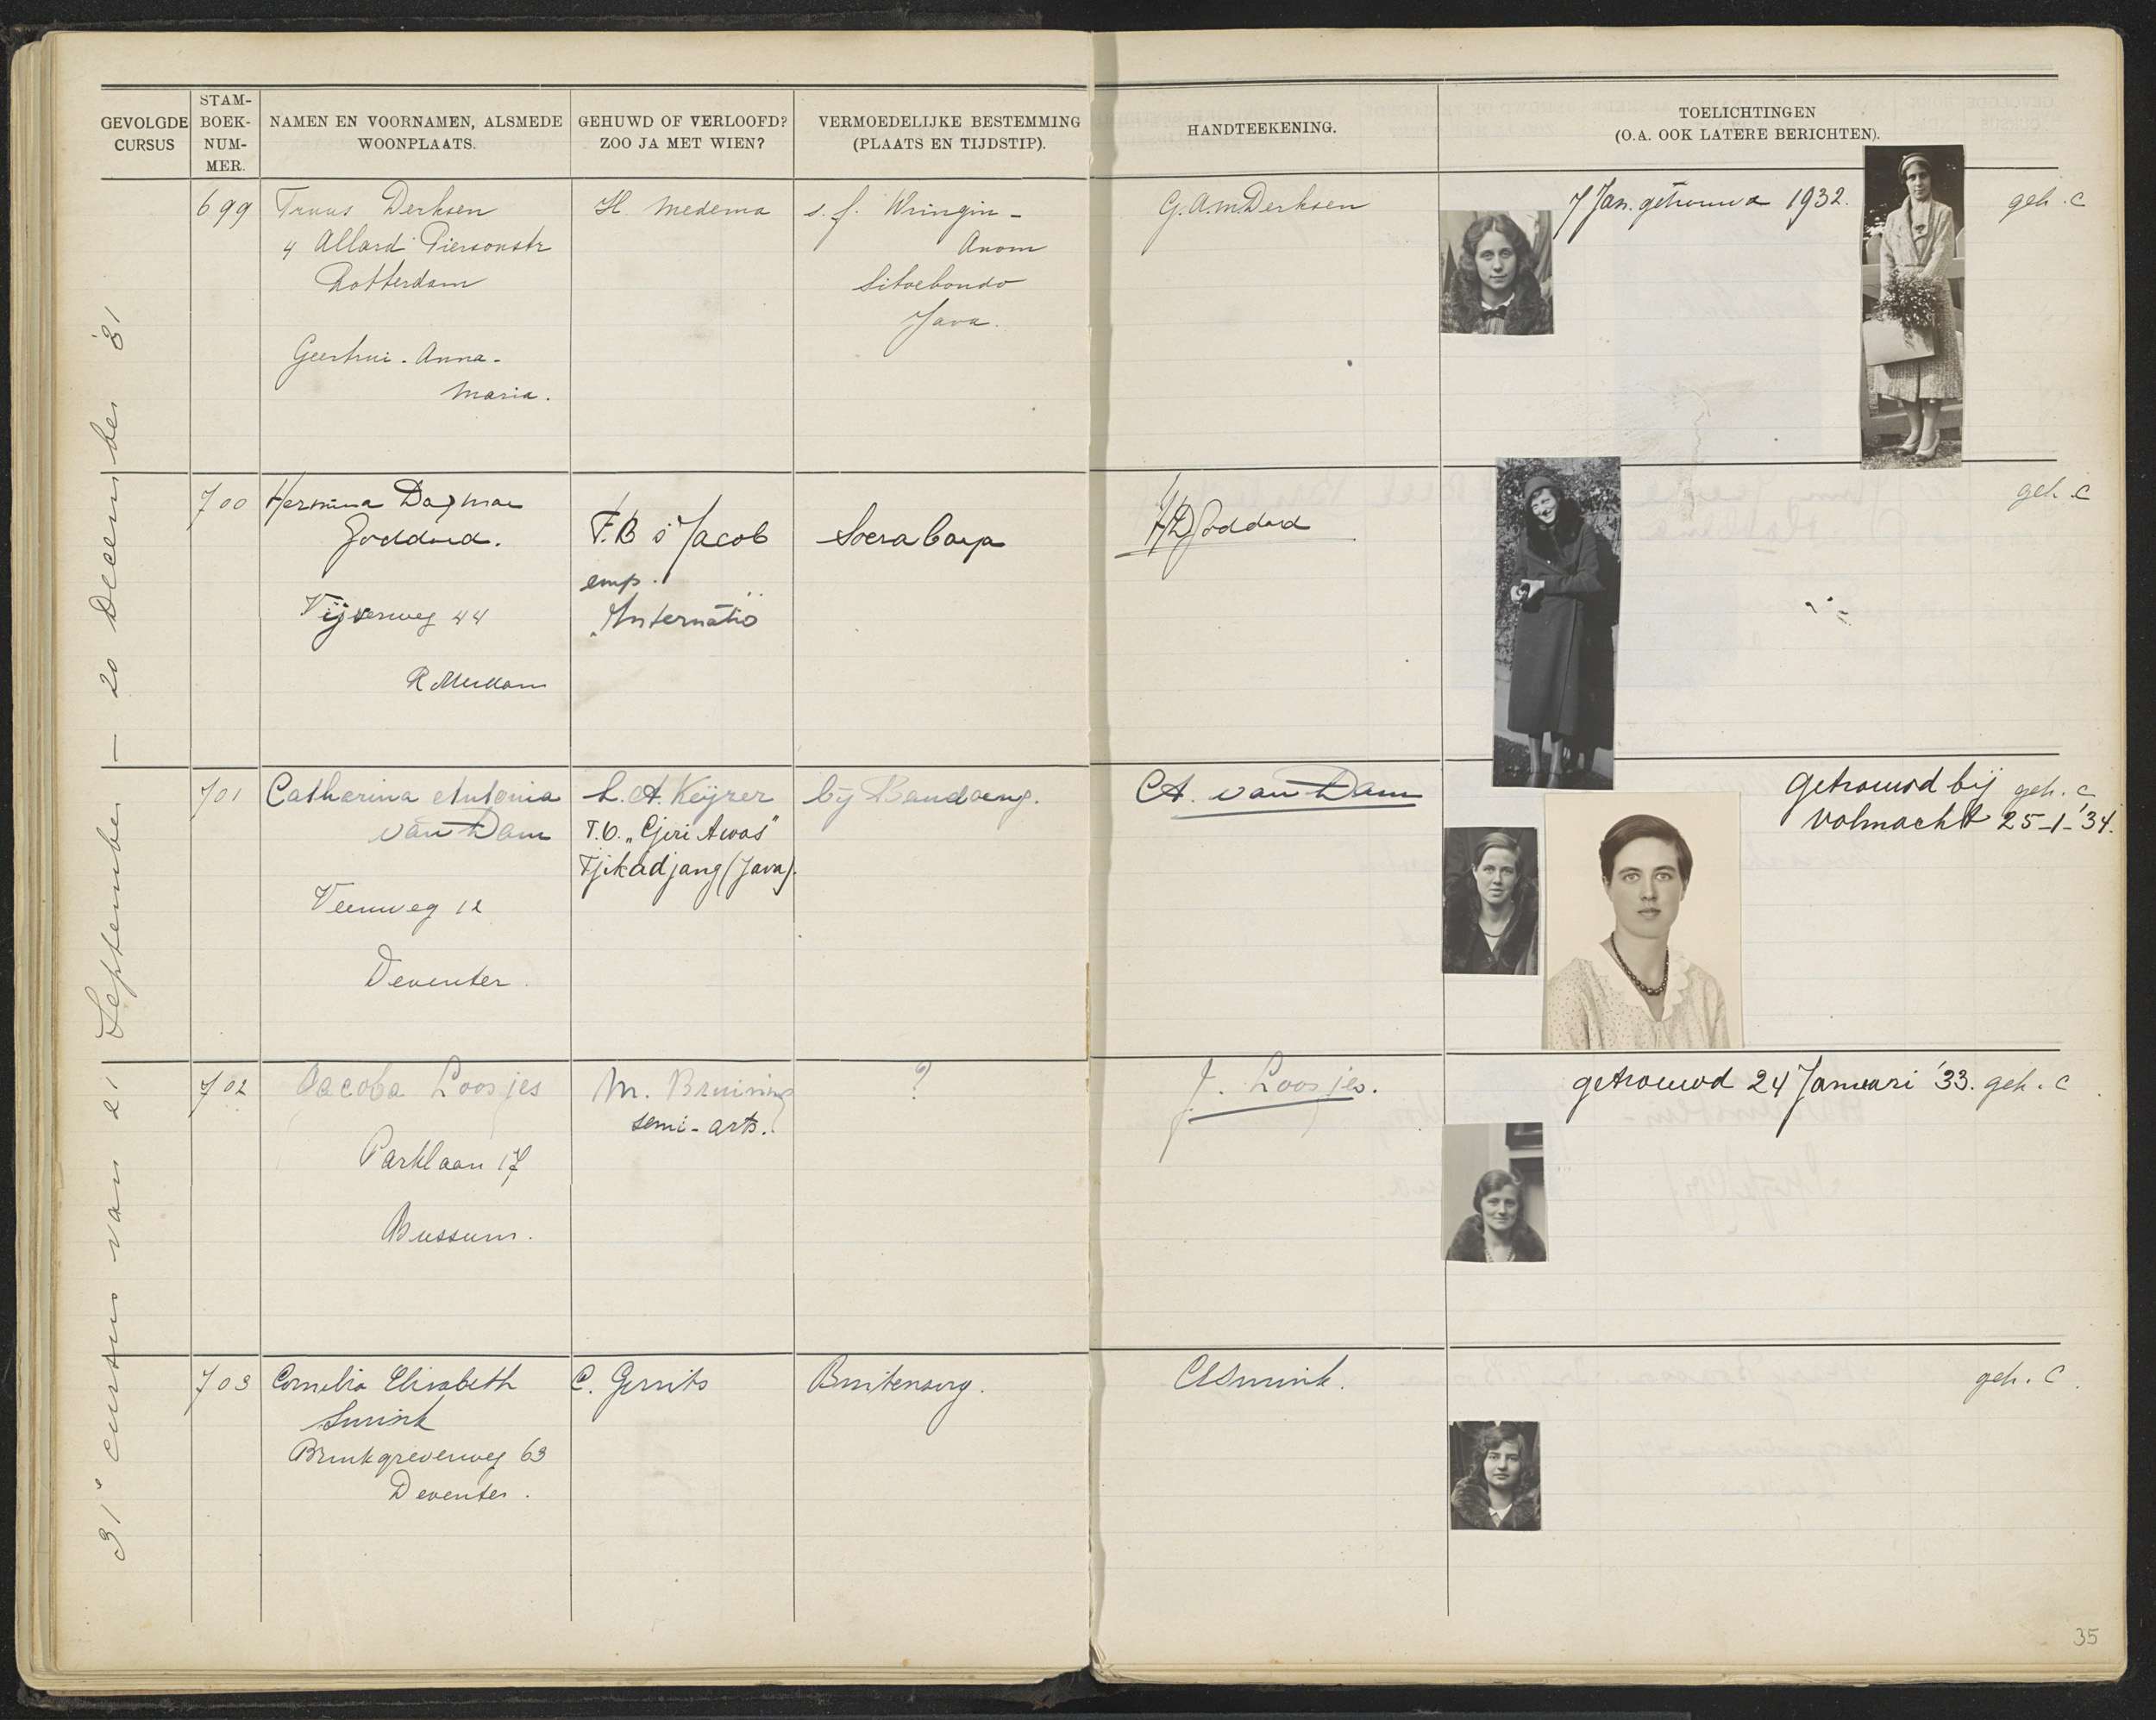 GEVOLGDE
CURSUS
STAM-
BOEK-
NUM-
MER.
NAMEN EN VOORNAMEN, ALSMEDE
WOONPLAATS.
GEHUWD OF VERLOOFD?
ZOO JA MET WIEN?
VERMOEDELIJKE BESTEMMING
(PLAATS EN TIJDSTIP).
HANDTEEKENING.
TOELICHTINGEN
(O.A. OOK LATERE BERICHTEN).
31e cursus van 21 September — 20 December '31
699
Truus Derksen
4 Allard Piersonstr
Rotterdam
Geertrui-Anna-
Maria.
H. Medema
s.f. Wringin-
Anom
Sitoebondo
Java.
G.A.M. Derksen
7 Jan. getrouwd 1932.
geh. C
700
Hermina Dagmar
Goddard.
Vijverweg 44
Rotterdam
F.B. s'Jacob
emp.
"Internatio"
Soerabaya
HDGoddard
geh. C
701
Catharina Antonia
van Dam
Veenweg 12
Deventer.
L.A. Keijzer
T.O. „Giri Awas"
Tjikadjang (Java).
bij Bandoeng.
CA. van Dam
getrouwd bij
volmacht 25-1-'34.
geh. C
702
Jacoba Loosjes
Parklaan 17
Bussum.
M. Bruining
semi-arts.
?
J. Loosjes.
getrouwd 24 Januari '33.
geh. C
703
Cornelia Elisabeth
Smink
Brinkgreverweg 63
Deventer.
C. Gerrits
Buitenzorg.
CESmink.
geh. C.
35